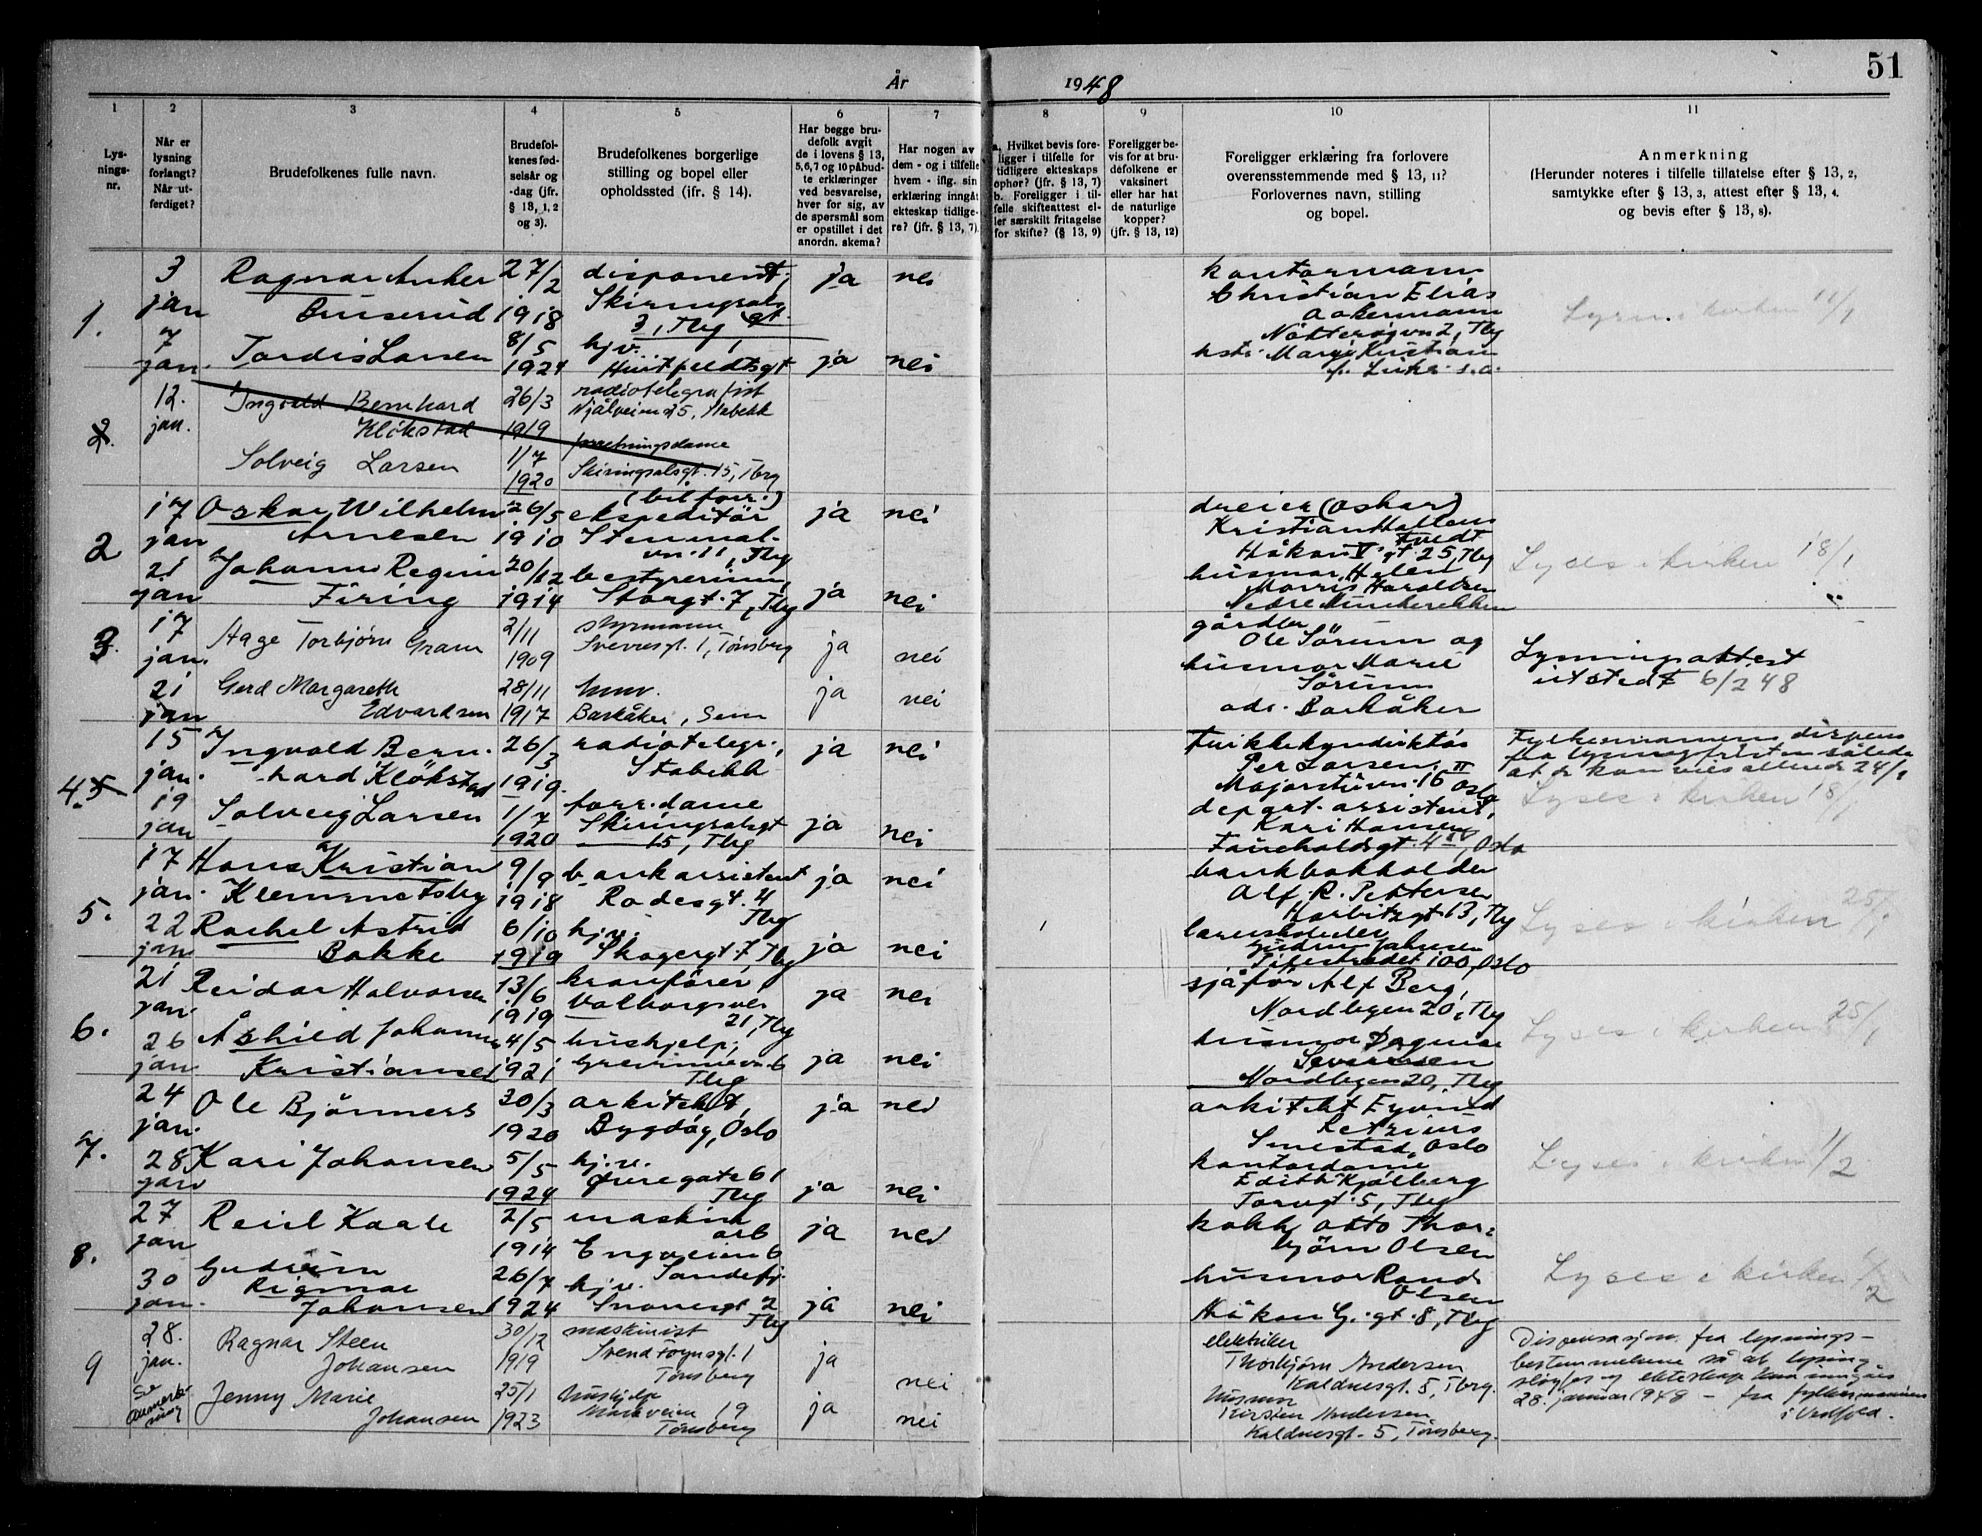 51
År 1948
1 2 3 4 5 6 7 8 9 10 11
Lysningsnr.
Når er lysning forlangt? Når utferdiget?
Brudefolkenes fulle navn.
Brudefolkenes fødselsår og -dag (jfr. § 13, 1, 2 og 3).
Brudefolkenes borgerlige stilling og bopel eller opholdssted (ifr. § 14).
Har begge brudefolk avgit de i lovens § 13, 5, 6, 7 og 10 påbudte erklæringer ved besvarelse, hver for sig, av de spørsmål som er opstillet i det anordn. skema?
Har nogen av dem - og i tilfelle hvem - iflg. sin erklæring inngåt ekteskap tidligere? (jfr. § 13, 7).
a. Hvilket bevis foreligger i tilfelle for tidligere ekteskaps ophør? (jfr. § 13, 7)
b. Foreligger i tilfelle skifteattest eller særskilt fritagelse for skifte? (§ 13, 9)
Foreligger bevis for at brudefolkene er vaksinert eller har hat de naturlige kopper? (jfr. § 13, 12)
Foreligger erklæring fra forlovere overensstemmende med § 13, 11? Forlovernes navn, stilling og bopel.
Anmerkning
(Herunder noteres i tilfelle tillatelse efter § 13, 2, samtykke efter § 13, 3, attest efter § 13, 4. og bevis efter § 13, 8).
1.
3 jan
Ragnar Anker
27/2 1918
disponent,
Skiringsals
3, Tbg
ja nei
kontormann
Christian Elias
Nøtterøyvn 2, Tbg
11/1
7 jan.
Tordis Larsen
8/5 1924
hjv.
Huitfeldtsgt
ja nei
2.
12. jan.
Ingvald Bernhard
Kløkstad
26/3 1919
radiotelegrafist
Njålveien 25, Stabekk
Solveig Larsen
1/7 1920
forretningsdame
Skiringsalsgt. 15, Tbrg
2
17 jan
Oskar Wilhelm
Arnesen
26/5 1910
(bilforr.)
ekspeditør
vn. 11, Tbg
ja nei
dreier (Oskar)
Kristian Hallens
Tvedt
Håkon V gt 25, Tbg
Lyses i kirken 18/1
21 jan
Johanne Regine
Firing
20/12 1914
bestyrerinne,
Storgt. 7, Tbg
ja nei
husmor Helen
Morris Haraldsen
Nedre Munkerekken
3.
17 jan.
Hage Torbjørn Gram
2/11 1909
styrmann
Sverresgt. 1, Tønsberg
ja nei
gårdbr
Ole Sørum og
husmor Marie
Sørum
adr. Barkåker
Lysningsattest
utstedt 6/2 48
21 jan
Gerd Margareth
Edvardsen
28/11 1917
Barkåker, Sem
ja nei
4. 5
15 jan.
Ingvald Bern-
hard Kløkstad
26/3 1919.
radiotelegr.,
Stabekk
ja nei
Per Larsen,
Majorstuvn. 16 III Oslo
Fylkesmannens dispens
fra lysningsfristen således
at de kan vies allerede 24/1
Lyses i kirken 18/1
19 jan
Solveig Larsen
1/7 1920
forr. dame
Skiringsalsgt
15, Tbg
ja nei
depart. assistent,
Kari Hansen
17 jan.
5.
Hans Kristian
Klemmetsby
9/9 1918
bankassistent
Rosesgt. 4
Tbg
ja nei
bankbokholder
Alf. R. Pettersen
Lyses i kirken 25/1
22 jan
Rachel Astrid
Bakke
6/10 1919
hjv.
Skagergt 7 Tbg
ja nei
Gudrun Johnsen
Pilestredet 100, Oslo
6.
21 jan.
Reidar Halvorsen
13/6 1919
kranfører
Valborgsvei
21, Tbg
ja nei
sjåfør Alf Berg,
Nordbyen 20, Tbg
Lyses i kirken 25/1
26 jan
Åshild Johanne
Kristiansen
4/5 1921
hushjelp,
Grevinnevn. 6
Tbg
ja nei
husmor Dagmar
Seversen
Nordbyen 20, Tbg
7.
24 jan.
Ole Bjørners
30/3 1920
arkitekt,
Bygdøy, Oslo
ja nei
arkitekt Eyvind
Retzius
Smestad, Oslo
Lyses i kirken 1/2
28 jan
Kari Johansen
5/5 1924
hj.v.
Øvregate 61
Tbg
ja nei
kontordame
Edith Kjølberg
Torvgt. 5, Tbg
8.
27 jan
Reiel Kaale
2/5 1914
maskin
arb
Engveien 6
Sandefj.
ja nei
kokk Otto Thor-
bjørn Olsen
Lyses i kirken 1/2
30 jan.
Gudrun
Rigmor
Johansen
26/7 1924
hj.v.
Snorresgt 2
Tbg
ja nei
husmor Rand
Olsen
Håkon G. gt. 8, Tbg
9
28. jan.
Ragnar Steen
Johansen
30/12 1919
maskinist
Svend Foynsgt. 1
Tønsberg
ja nei
elektriker
Thorbjørn Andersen
Kaldnesgt. 5, Tbrg.
Dispensasjon fra lysnings-
bestemmelsene så at lysing
sløyfes og ekteskap kan inngåes
28. januar 1948 - fra fylkesmannen
i Vestfold.
Se
Anmerk-
ning
Jenny Marie
Johansen
25/1 1923
Hushjelp
Markveien 19
Tønsberg
ja nei
Husmor
Kirsten Andersen
Kaldnesgt. 5, Tønsberg.